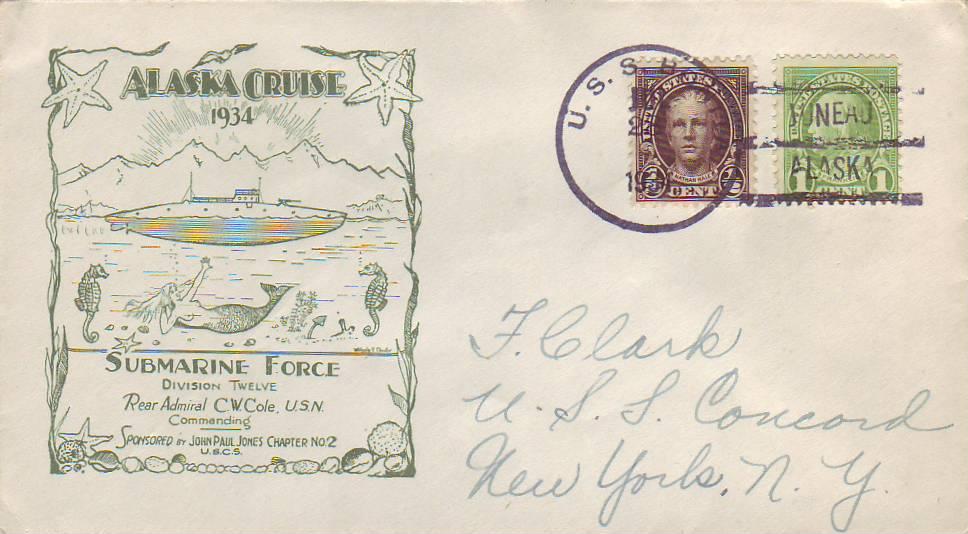 ALASKA CRUISE
1934
SUBMARINE FORCE
DIVISION TWELVE
Rear Admiral C.W. Cole, U.S.N.
Commanding
SPONSORED BY JOHN PAUL JONES CHAPTER NO. 2
U.S.C.S.
U. S. S. B
UNITED STATES
NATHAN HALE
CENT
JUNEAU
ALASKA
1 1
F. Clark
U. S. S. Concord
New York, N. Y.